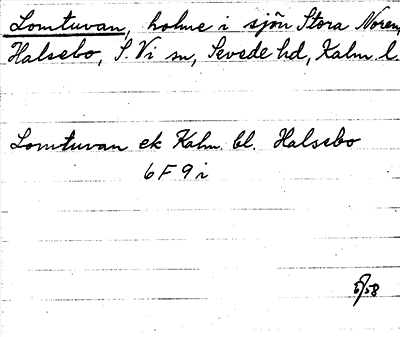 Lomtuvan, holme i sjön Stora Noren,
Halsebo, S. Vi sn, Sevede hd, Kalm. l.
Lomtuvan ek Kalm. bl. Halsebo
6 F 9 i